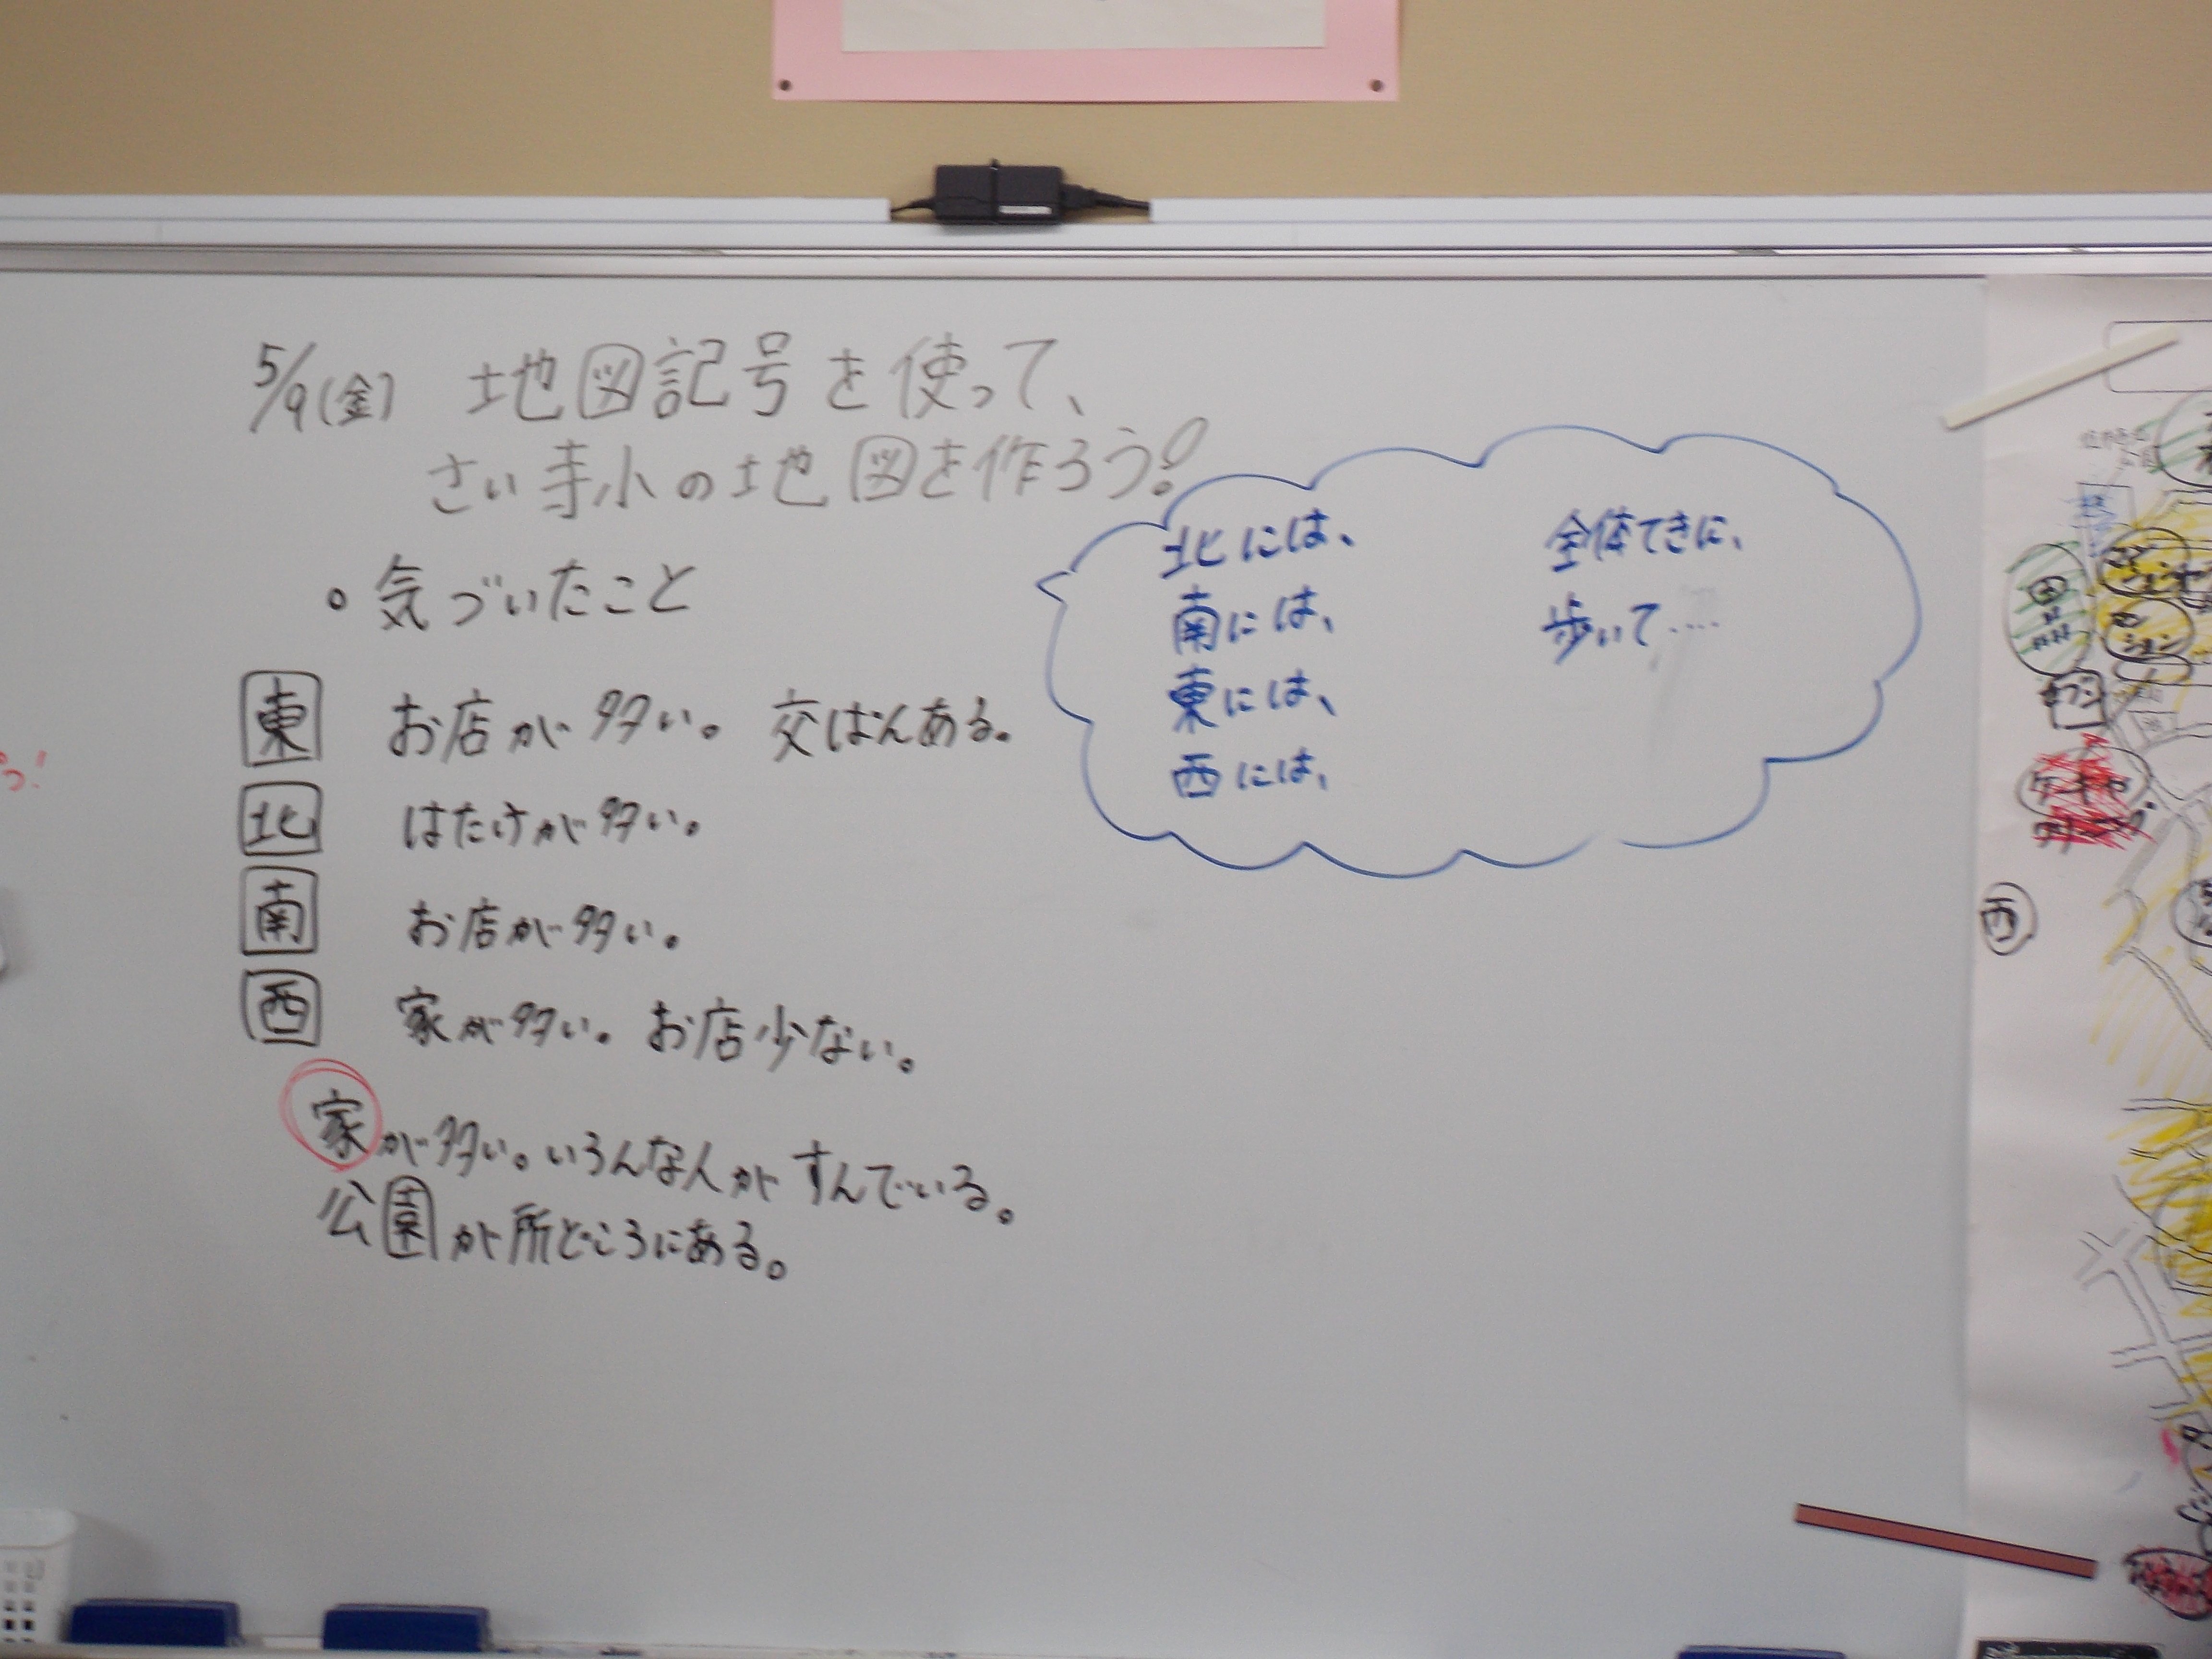 5/9(金) 地図記号を使って、
さい寺小の地図を作ろう!
。気づいたこと
東 お店が多い。交ばんある。
北 はたけが多い。
南 お店が多い。
西 家が多い。お店少ない。
家が多い。いろんな人がすんでいる。
公園が所どころにある。
北には、
南には、
東には、
西には、
全体てきに、
歩いて……
西